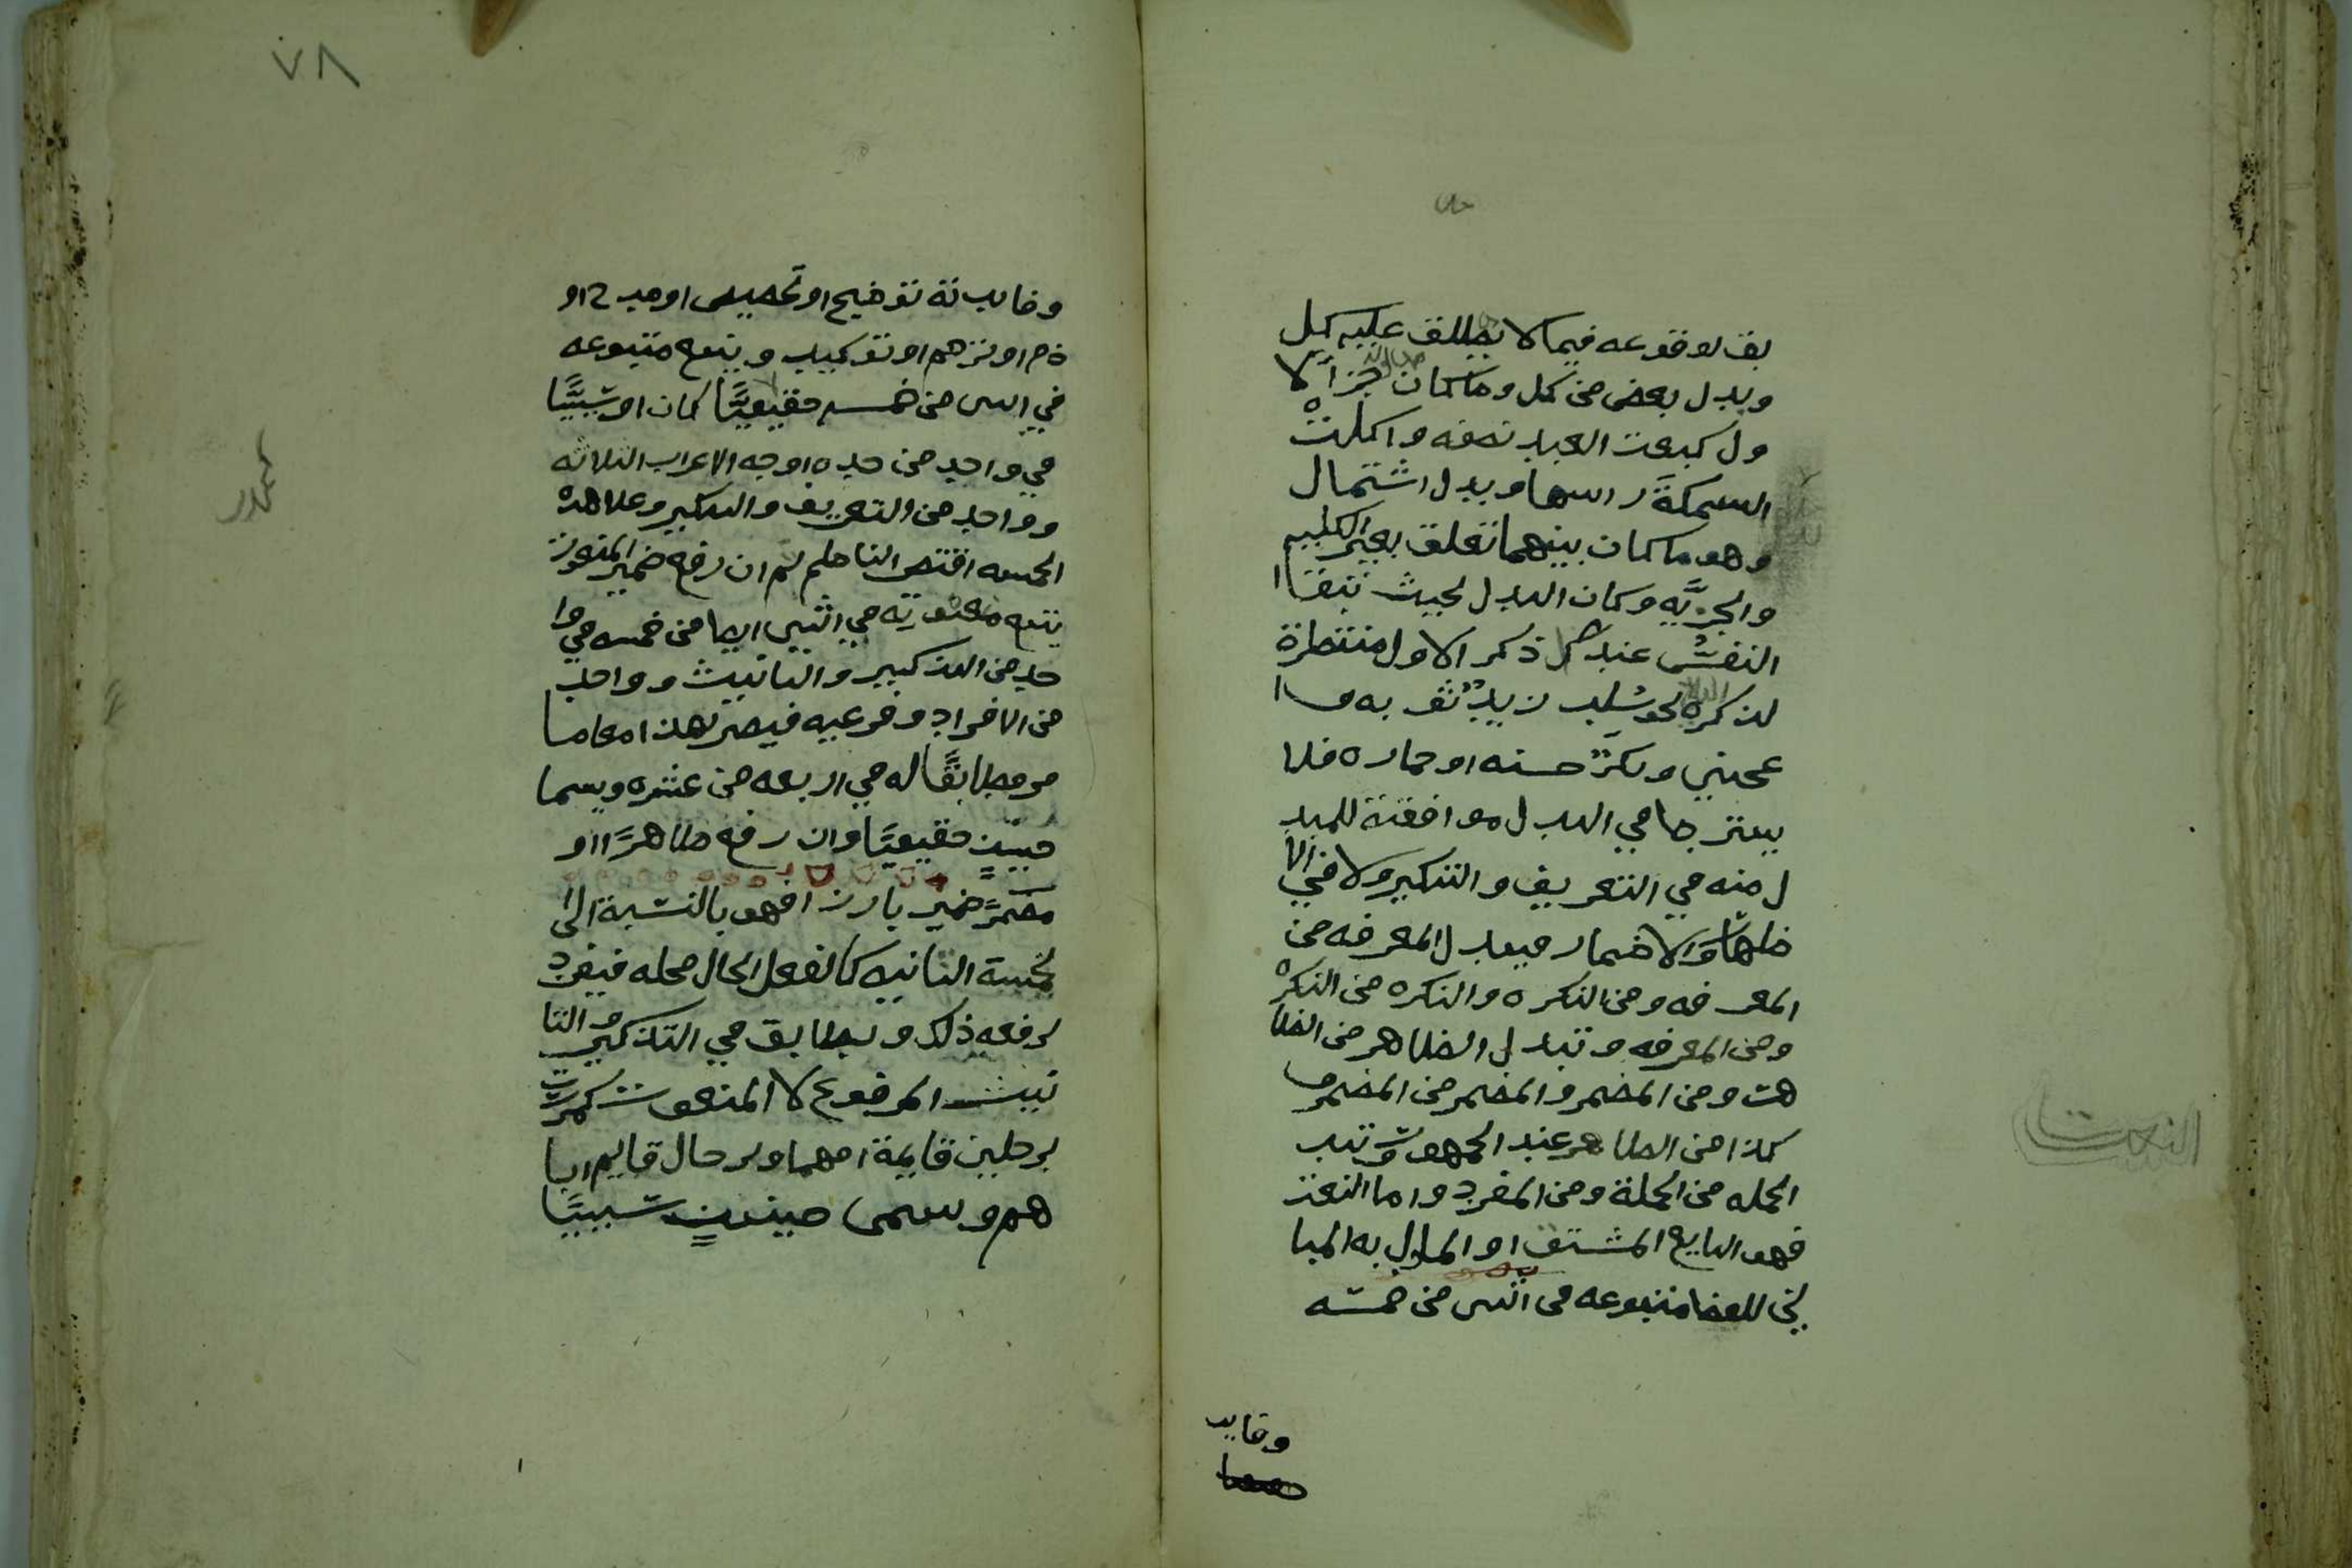 بق لوقوعه فيما لا يطلق عليه كل
وبدل بعض من كل وما كان جزأ لا
ول كبعت العبد نصفه واكلت
السمكةَ راسها وبدل اشتمال
وهو ما كان بينهما تعلق بغير الكليه
والجزيَّه وكان البدل بحيث تبقا
النفسُ عند ذكر الاول منتظرة
لذكره نحو سُلِب زيدٌ ثوبه وا
عجبني بكرٌ حسنه او حماره فلا
يشترطا في البدل موافقته للمبد
ل منه في التعريف والتنكير ولا في الا
ظهار والاضمار فيبدل المعرفه من
المعرفه ومن النكره والنكره من النكره
ومن المعرفه وتبدل الظاهر من الظا
هر ومن المضمر والمضمر من المضمر و
كذا من الظاهر عند الجمهور وتبد
الجمله من الجملة ومن المفرد واما النعت
فهو التابع المشتق او الماول به المبا
ين للفظ متبوعه في اثنين من خمسه
وفايد
النعت
٧٨
وفايدته توضيح او تخصيص او مدح او
ذم او ترحم او توكيد ويتبع متبوعه
في اثنين من خمسه حقيقيًّا كان او سببيًّا
في واحد من اوجه الاعراب الثلاثه
وواحد من التعريف والتنكير وعلا هذه
الخمسه اقتصر الناظم ثم ان رفع ضمير المنعوت
يتبع منعوته في اثنين ايضا من خمسه في وا
حد من التذكير والتانيث وواحد
من الافراد وفرعيه فيصير بهذا مع ما
مر مطابقًا له في اربعه من عشره ويسما
حينيذٍ حقيقيًّا وان رفع ظاهرًا او
ضميرًا بارزا فهو بالنسبة الى
لخمسة الثانيه كالفعل الحال محله فيفرد
لرفعه ذلك ويطابق في التذكير والتا
نيث المرفوع لا المنعوت كمررت
برجلين قايمة امهما وبرجال قايم ابا
هم ويسمى حينيذٍ سببيًّا